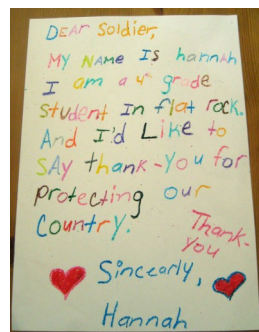 DEAr Soldier,
MY NAME IS hannah
I am a 4th grade
student In flat rock.
And I'd Like to
SAY thank-You for
protecting our
Country.
Thank-
You
Sincearly,
Hannah